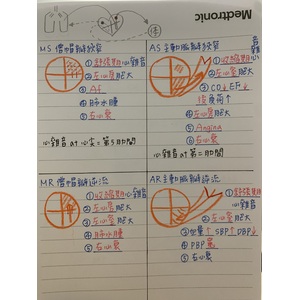 Medtronic
MS 僧帽瓣狹窄
①舒張期心雜音
②左心房肥大
③Af
④肺水腫
⑤右心衰
心雜音 at 心尖=第5肋間
AS 主動脈瓣狹窄
①收縮期心雜音
②左心室肥大
③CO↓EF↓
後負荷↑
④左心衰
⑤Angina
⑥右心衰
心雜音 at 第二肋間
MR 僧帽瓣逆流
①收縮期心雜音
②左心室肥大
③左心房肥大
④肺水腫
⑤右心衰
AR 主動脈瓣逆流
①舒張期
心雜音
②左心室肥大
③世量↑SBP↑DBP↓
④PBP寬
⑤右心衰